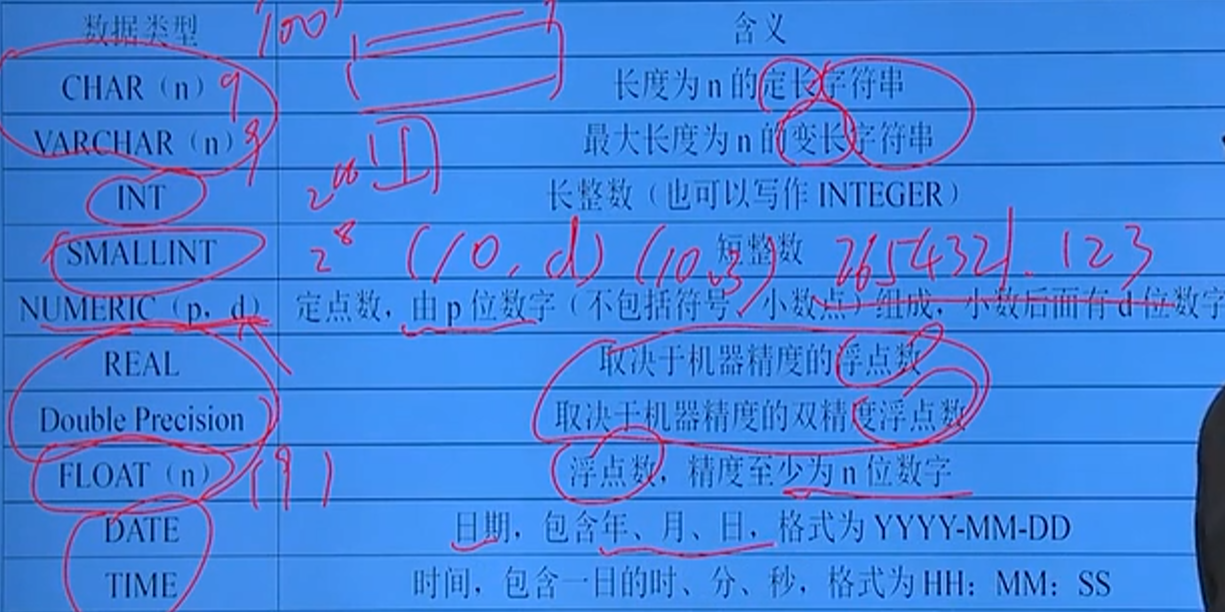 数据类型 '100' 含义
CHAR（n）9 长度为 n 的定长字符串
VARCHAR（n）9 最大长度为 n 的变长字符串
INT 长整数（也可以写作 INTEGER）
SMALLINT 2^8 (10, d) (10,3) 短整数 7654321.123
NUMERIC（p，d） 定点数，由 p 位数字（不包括符号、小数点）组成，小数后面有 d 位数字
REAL 取决于机器精度的浮点数
Double Precision 取决于机器精度的双精度浮点数
FLOAT（n） (9) 浮点数，精度至少为 n 位数字
DATE 日期，包含年、月、日，格式为 YYYY-MM-DD
TIME 时间，包含一日的时、分、秒，格式为 HH：MM：SS